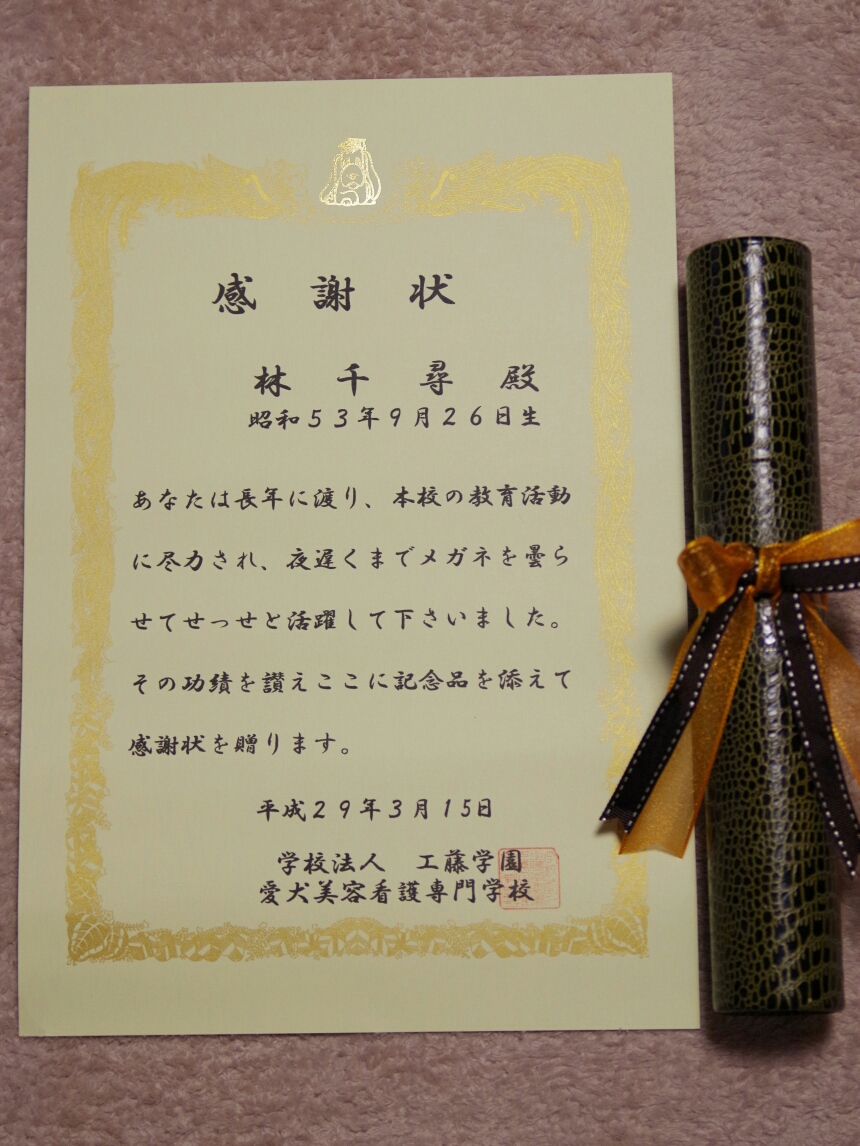 感謝状
林千尋殿
昭和53年9月26日生
あなたは長年に渡り、本校の教育活動
に尽力され、夜遅くまでメガネを曇ら
せてせっせと活躍して下さいました。
その功績を讃えここに記念品を添えて
感謝状を贈ります。
平成29年3月15日
学校法人 工藤学園
愛犬美容看護専門学校